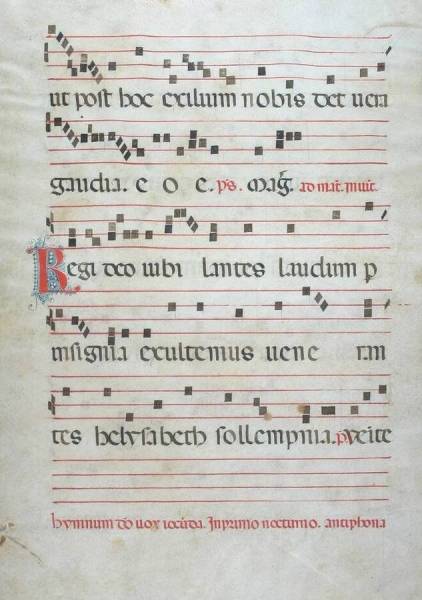 ut post hoc exilium nobis det uera
gaudia. e o e. ps. Mag̃. ad mat. inuit.
Regi deo iubi lantes laudum p
insignia exultemus uene ran
tes helysabeth sollempnia. p̃. Uenite
hymnum do uox iocũda. In primo nocturno. antiphona